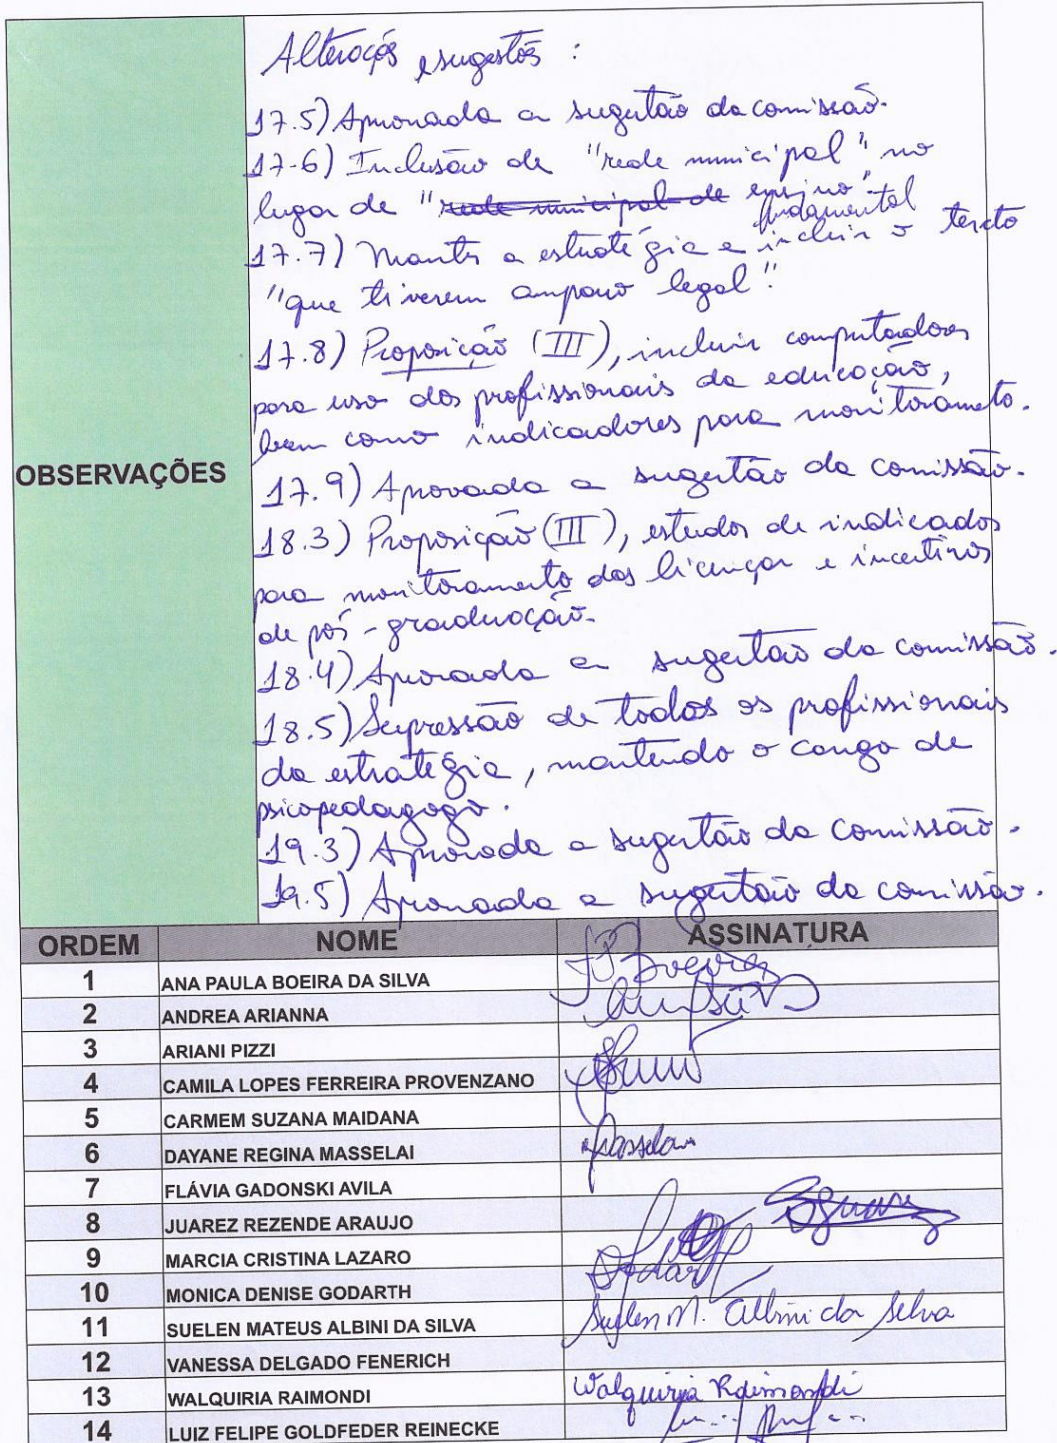 Alterações e sugestões :
17.5) Aprovada a sugestão da comissão.
17.6) Inclusão de "rede municipal" no
lugar de "rede municipal de ensino fundamental"
17.7) Manter a estratégia e incluir o texto
"que tiverem amparo legal".
17.8) Proposição (III), incluir computadores
para uso dos profissionais da educação,
bem como indicadores para monitoramento.
OBSERVAÇÕES
17.9) Aprovada a sugestão da comissão.
18.3) Proposição (III), estudos de indicados
para monitoramento das licenças e incentivos
de pós-graduação.
18.4) Aprovada a sugestão da comissão.
18.5) Supressão de todos os profissionais
da estratégia, mantendo o cargo de
psicopedagogo.
19.3) Aprovada a sugestão da comissão.
19.5) Aprovada a sugestão da comissão.
ORDEM NOME ASSINATURA
1 ANA PAULA BOEIRA DA SILVA Boeira
2 ANDREA ARIANNA
3 ARIANI PIZZI
4 CAMILA LOPES FERREIRA PROVENZANO
5 CARMEM SUZANA MAIDANA
6 DAYANE REGINA MASSELAI Masselai
7 FLÁVIA GADONSKI AVILA
8 JUAREZ REZENDE ARAUJO
9 MARCIA CRISTINA LAZARO
10 MONICA DENISE GODARTH
11 SUELEN MATEUS ALBINI DA SILVA Suelen M. Albini da Silva
12 VANESSA DELGADO FENERICH
13 WALQUIRIA RAIMONDI Walquiria Raimondi
14 LUIZ FELIPE GOLDFEDER REINECKE